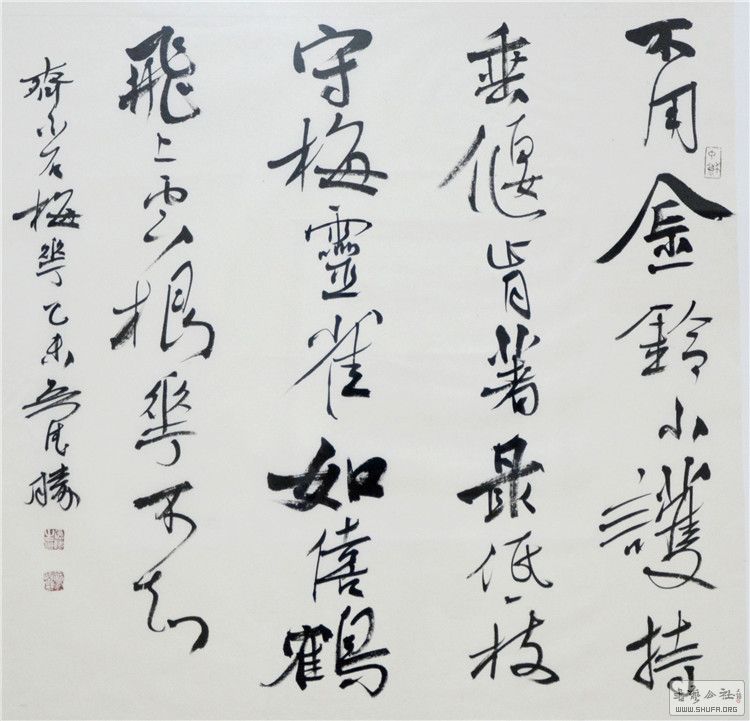 不用金鈴小護持
垂偃肯著最低枝
守梅靈雀如僖鶴
飛上雲根華不知
石梅華乙未
書藝公社
WWW.SHUFA.ORG